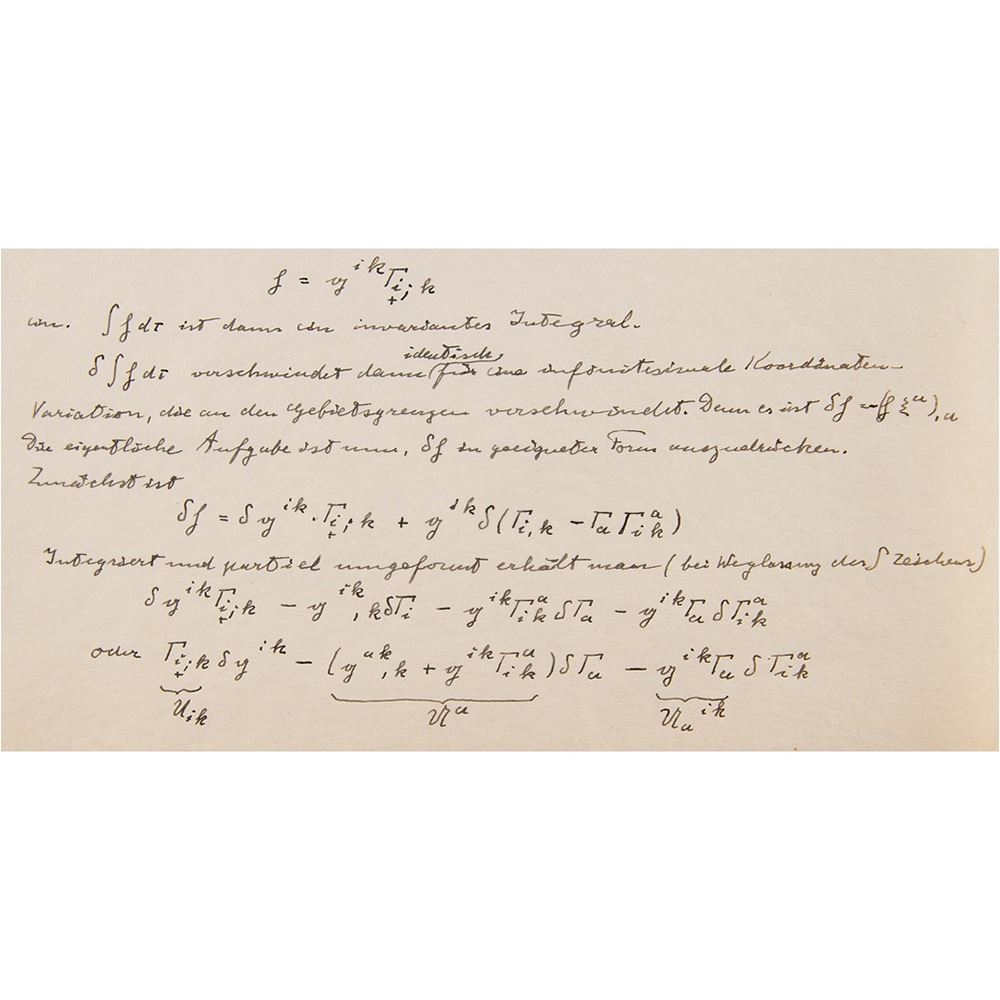 f = 𝔤^{ik} Γ_{i;k}
+
ein. ∫f dτ ist dann ein invariantes Integral.
identisch
δ∫f dτ verschwindet dann für eine infinitesimale Koordinaten-
Variation, die an den Gebietsgrenzen verschwindet. Denn es ist δf = -(f ξ^a)_{,a}
Die eigentliche Aufgabe ist nun, δf in geeigneter Form auszudrücken.
Zunächst ist
δf = δ𝔤^{ik}·Γ_{i;k} + 𝔤^{ik} δ(Γ_{i,k} − Γ_a Γ_{ik}^a)
+
Integriert und partiel umgeformt erhält man (bei Weglassung des ∫ Zeichens)
δ𝔤^{ik} Γ_{i;k} − 𝔤^{ik}_{,k} δΓ_i − 𝔤^{ik} Γ_{ik}^a δΓ_a − 𝔤^{ik} Γ_a δΓ_{ik}^a
+
oder Γ_{i;k} δ𝔤^{ik} − (𝔤^{ak}_{,k} + 𝔤^{ik} Γ_{ik}^a) δΓ_a − 𝔤^{ik} Γ_a δΓ_{ik}^a
+
U_{ik} 𝔘^a 𝔘_a^{ik}